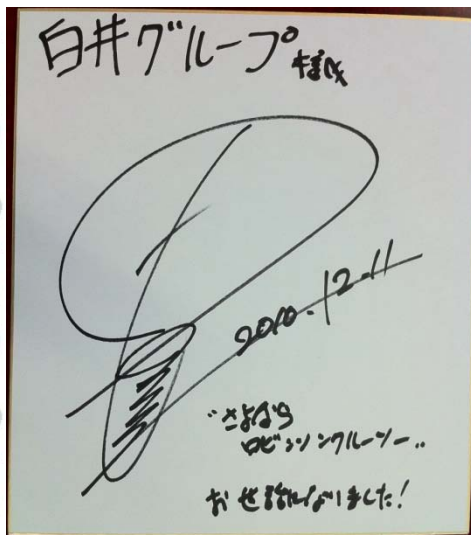 白井グループ様
2010.12.11
"さよなら
ロビンソンクルーソー"
お世話になりました!